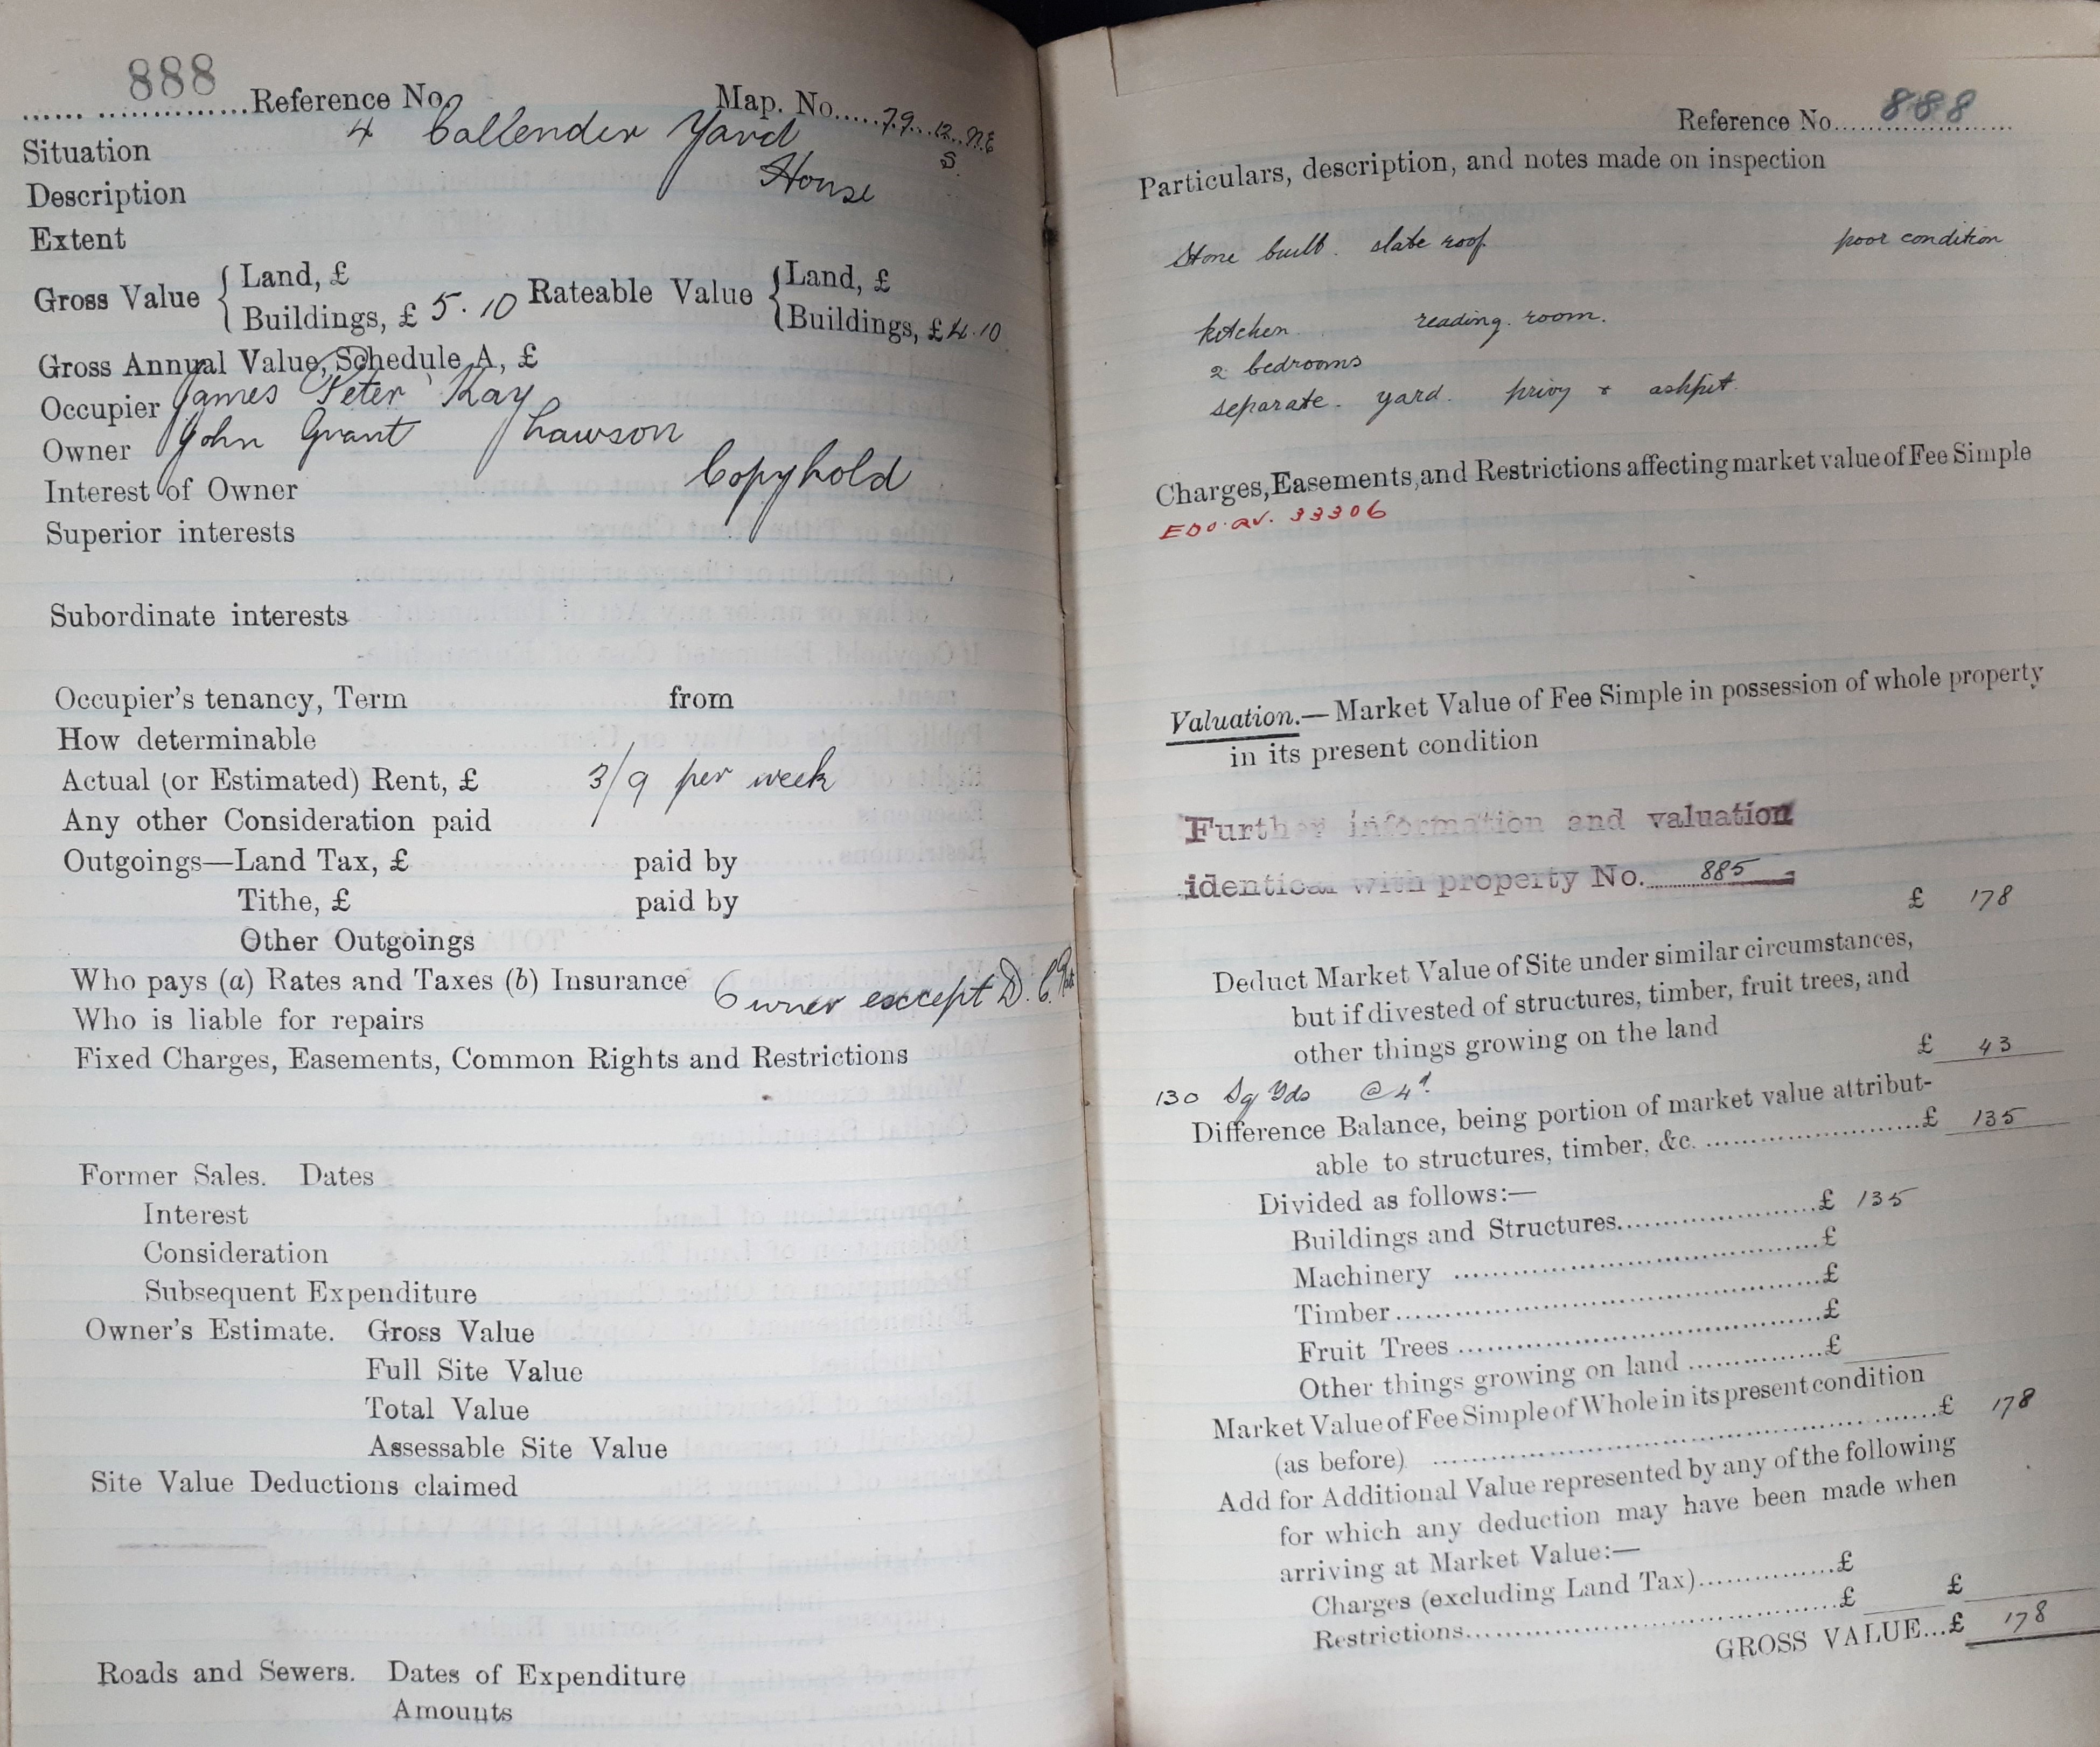 888 Reference No. Map. No. 79. 12. N.E
S.
Situation 4 Callender Yard
Description House
Extent
Gross Value { Land, £ Rateable Value { Land, £
Buildings, £ 5.10 Buildings, £ 4.10
Gross Annual Value, Schedule A, £
Occupier James Peter Kay
Owner John Grant Lawson
Interest of Owner Copyhold
Superior interests
Subordinate interests
Occupier's tenancy, Term from
How determinable
Actual (or Estimated) Rent, £ 3/9 per week
Any other Consideration paid
Outgoings—Land Tax, £ paid by
Tithe, £ paid by
Other Outgoings
Who pays (a) Rates and Taxes (b) Insurance Owner except D. C.
Who is liable for repairs
Fixed Charges, Easements, Common Rights and Restrictions
Former Sales. Dates
Interest
Consideration
Subsequent Expenditure
Owner's Estimate. Gross Value
Full Site Value
Total Value
Assessable Site Value
Site Value Deductions claimed
Roads and Sewers. Dates of Expenditure
Amounts
Reference No. 888
Particulars, description, and notes made on inspection
Stone built. slate roof. poor condition
kitchen. reading. room.
2 bedrooms
separate. yard. privy + ashpit.
Charges, Easements, and Restrictions affecting market value of Fee Simple
33306
Valuation.—Market Value of Fee Simple in possession of whole property
in its present condition
Further information and valuation
identical with property No. 885
£ 178
Deduct Market Value of Site under similar circumstances,
but if divested of structures, timber, fruit trees, and
other things growing on the land
£ 43
130 Sq Yds @ 4d.
Difference Balance, being portion of market value attribut-
able to structures, timber, &c. £ 135
Divided as follows:—
Buildings and Structures £ 135
Machinery £
Timber £
Fruit Trees £
Other things growing on land £
Market Value of Fee Simple of Whole in its present condition
(as before) £ 178
Add for Additional Value represented by any of the following
for which any deduction may have been made when
arriving at Market Value:—
Charges (excluding Land Tax) £
Restrictions £ £
GROSS VALUE...£ 178